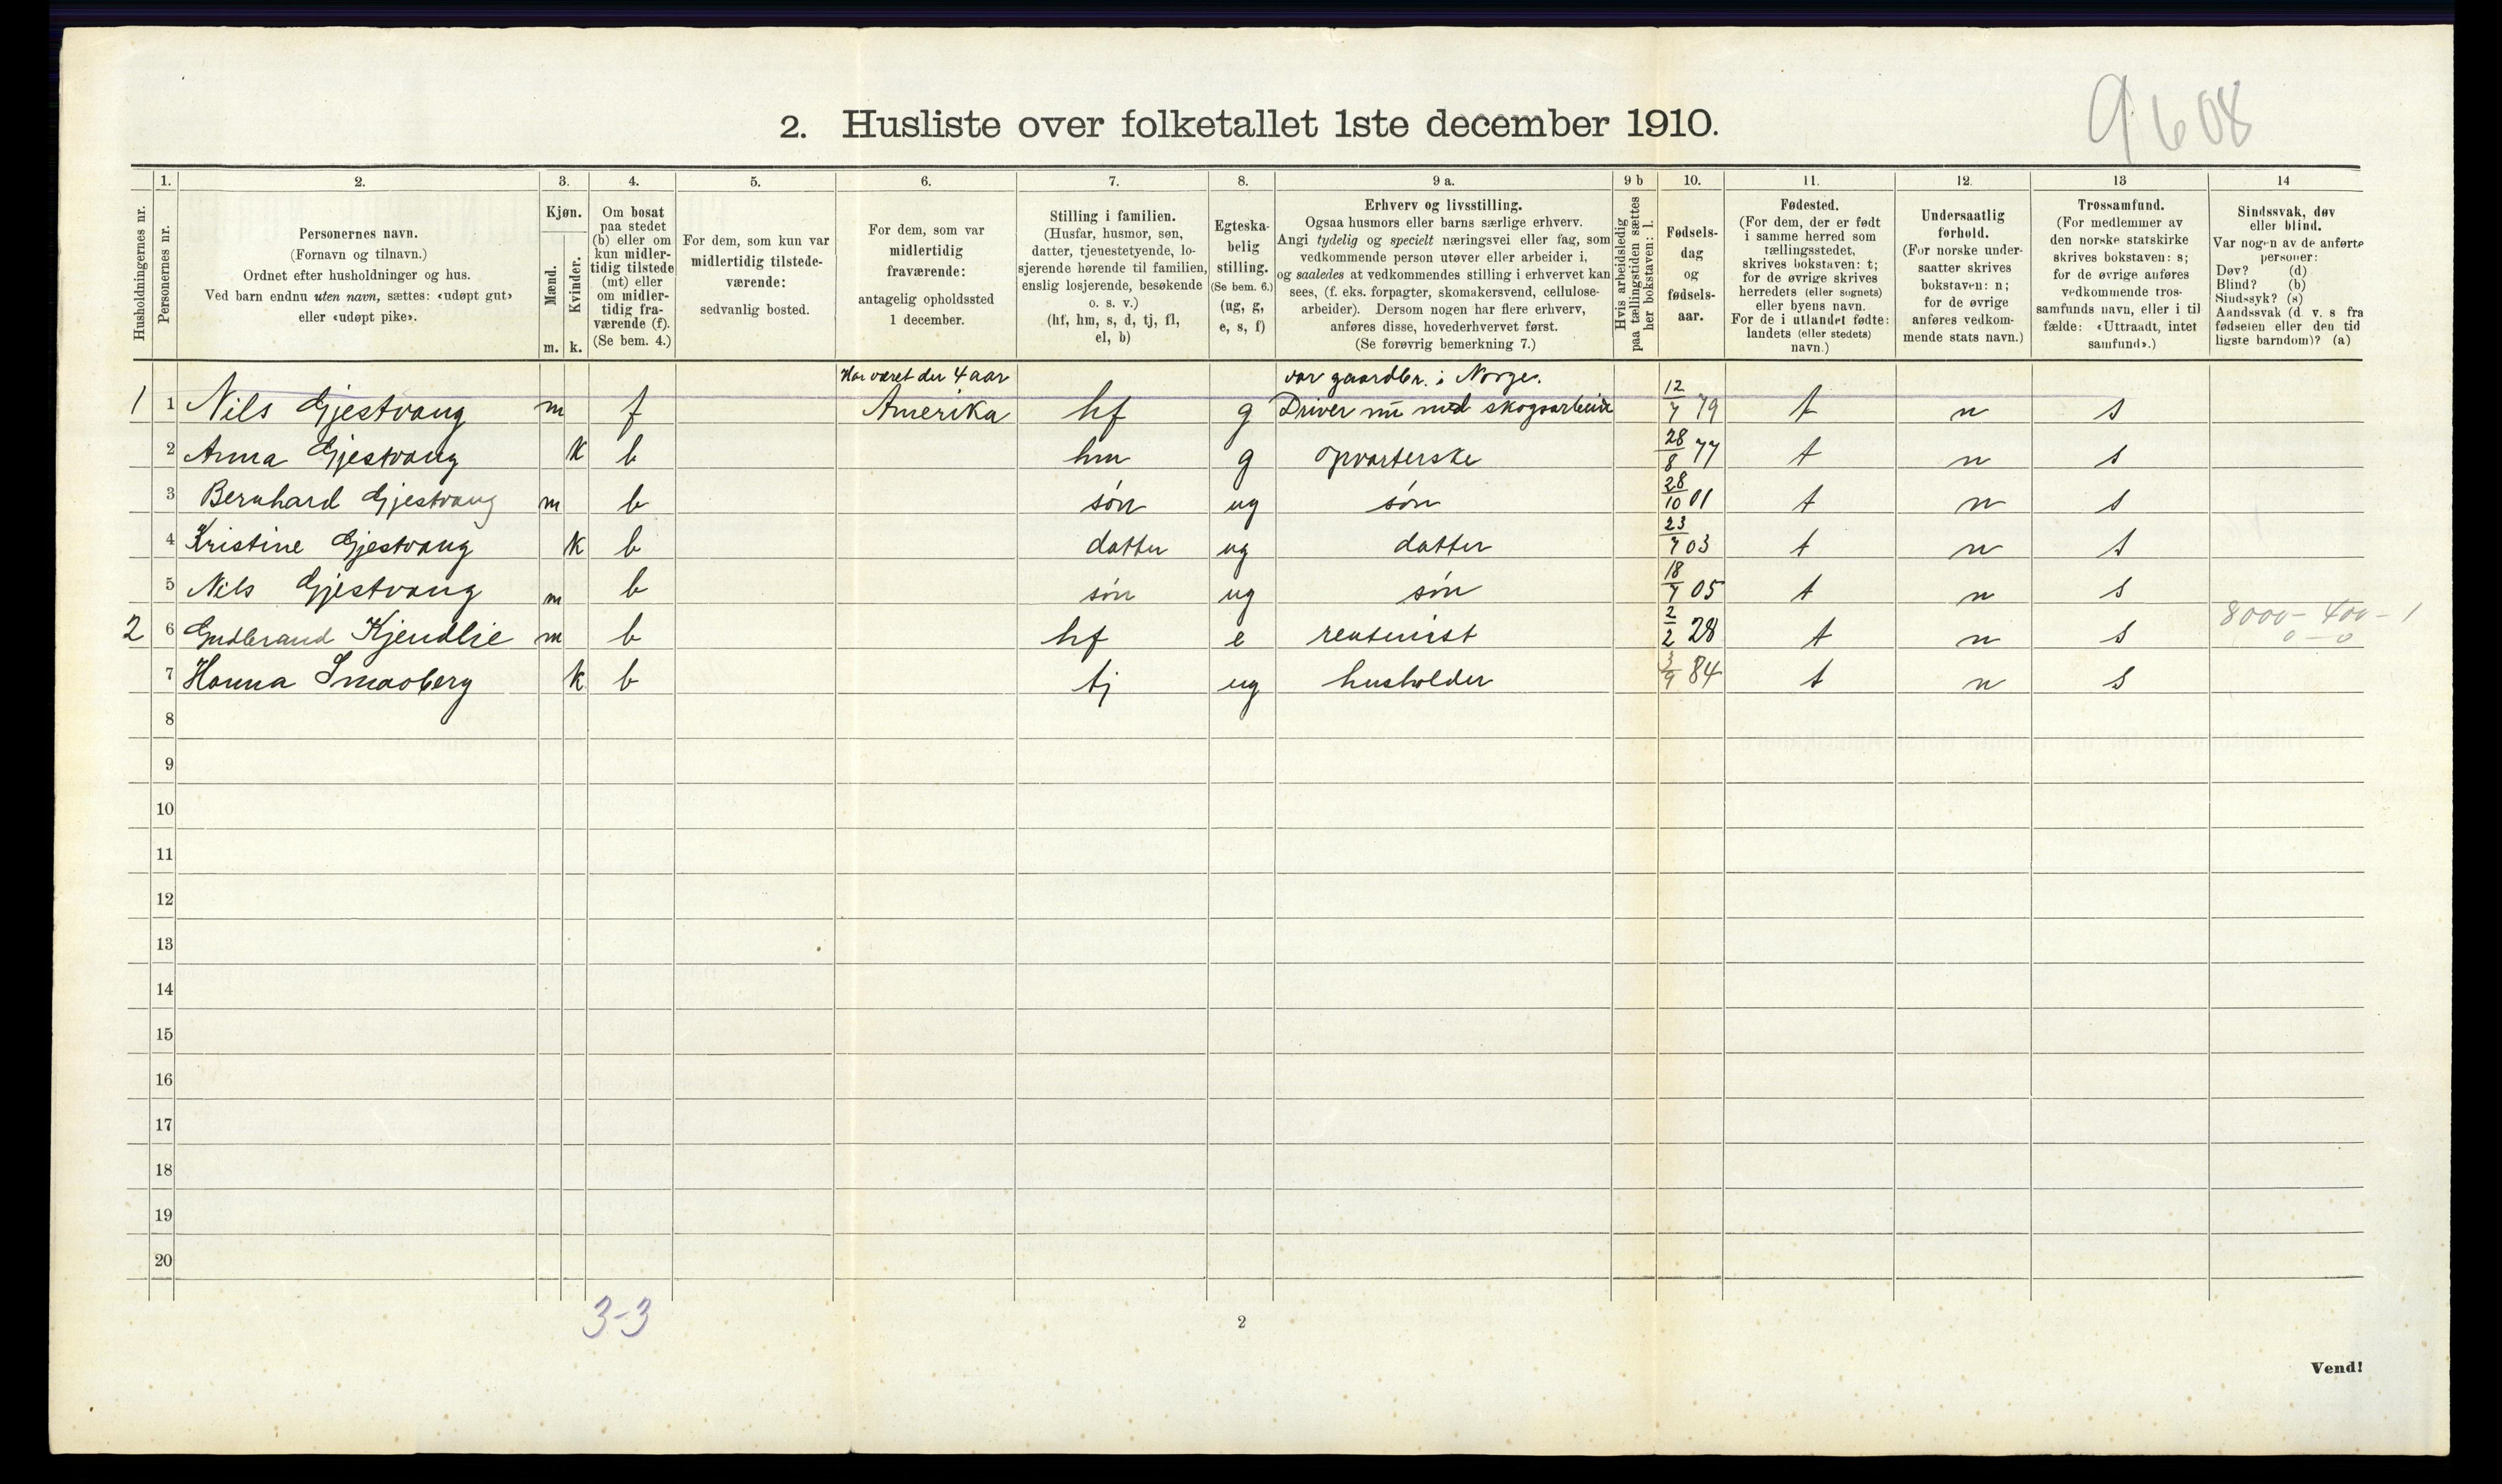 9608
2. Husliste over folketallet 1ste december 1910.
Husholdningernes nr.
1.
Personernes nr.
2.
Personernes navn.
(Fornavn og tilnavn.)
Ordnet efter husholdninger og hus.
Ved barn endnu uten navn, sættes: «udøpt gut»
eller «udøpt pike».
3.
Kjøn.
Mænd.
Kvinder.
m. k.
4.
Om bosat
paa stedet
(b) eller om
kun midler-
tidig tilstede
(mt) eller
om midler-
tidig fra-
værende (f).
(Se bem. 4.)
5.
For dem, som kun var
midlertidig tilstede-
værende:
sedvanlig bosted.
6.
For dem, som var
midlertidig
fraværende:
antagelig opholdssted
1 december.
7.
Stilling i familien.
(Husfar, husmor, søn,
datter, tjenestetyende, lo-
sjerende hørende til familien,
enslig losjerende, besøkende
o. s. v.)
(hf, hm, s, d, tj, fl,
el, b)
8.
Egteska-
belig
stilling.
(Se bem. 6.)
(ug, g,
e, s, f)
9 a.
Erhverv og livsstilling.
Ogsaa husmors eller barns særlige erhverv.
Angi tydelig og specielt næringsvei eller fag, som
vedkommende person utøver eller arbeider i,
og saaledes at vedkommendes stilling i erhvervet kan
sees, (f. eks. forpagter, skomakersvend, cellulose-
arbeider). Dersom nogen har flere erhverv,
anføres disse, hovederhvervet først.
(Se forøvrig bemerkning 7.)
9 b
Hvis arbeidsledig
paa tællingstiden sættes
her bokstaven: l.
10.
Fødsels-
dag
og
fødsels-
aar.
11.
Fødested.
(For dem, der er født
i samme herred som
tællingsstedet,
skrives bokstaven: t;
for de øvrige skrives
herredets (eller sognets)
eller byens navn.
For de i utlandet fødte:
landets (eller stedets)
navn.)
12.
Undersaatlig
forhold.
(For norske under-
saatter skrives
bokstaven: n;
for de øvrige
anføres vedkom-
mende stats navn.)
13
Trossamfund.
(For medlemmer av
den norske statskirke
skrives bokstaven: s;
for de øvrige anføres
vedkommende tros-
samfunds navn, eller i til
fælde: «Uttraadt, intet
samfund».)
14
Sindssvak, døv
eller blind.
Var nogen av de anførte
personer:
Døv? (d)
Blind? (b)
Sindssyk? (s)
Aandssvak (d. v. s. fra
fødselen eller den tid
ligste barndom)? (a)
Har været der 4 aar var gaardbr. i Norge.
1 1 Nils Gjestvang m f Amerika hf g Driver nu med skogsarbeide 12/7 79 t n s
2 Anna Gjestvang k b hm g opvarterske 28/8 77 t n s
3 Bernhard Gjestvang m b søn ug søn 28/10 01 t n s
4 Kristine Gjestvang k b datter ug datter 23/7 03 t n s
5 Nils Gjestvang m b søn ug søn 18/7 05 t n s
2 6 Gudbrand Kjendlie m b hf e rentenist 2/2 28 t n s 8000 - 400 - 1
0 - 0
7 Hanna Smaaberg k b tj ug husholder 3/9 84 t n s
8
9
10
11
12
13
14
15
16
17
18
19
20
3-3
2
Vend!